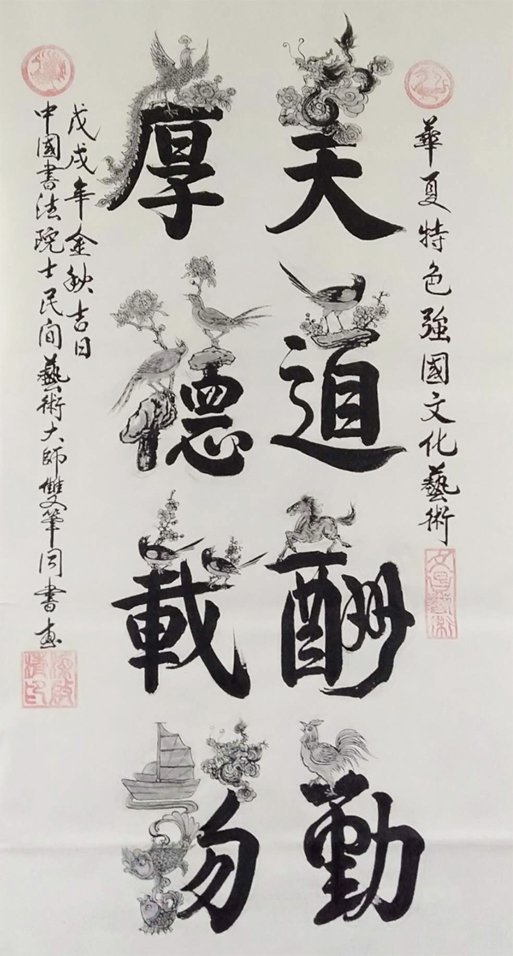 華夏特色強國文化藝術
天道酬勤
厚德載物
戊戌年金秋吉日
中國書法院士民间藝術大師雙筆同書畫